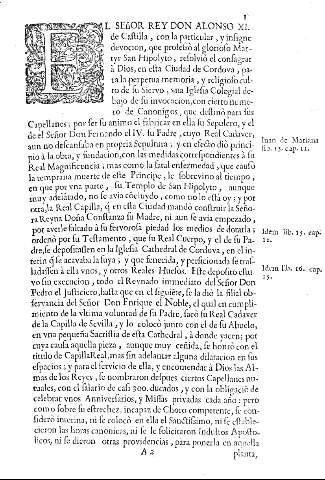 1
EL SEÑOR REY DON ALONSO XI.
de Castilla, con la particular, y insigne
devocion, que professò al glorioso Mar-
tyr San Hypolito, resolviò el consagrar
à Dios, en esta Ciudad de Cordova, pa-
ra la perpetua memoria, y religioso cul-
to de su Siervo, vna Iglesia Colegial de-
bajo de su invocacion, con cierto nume-
ro de Canonigos, que destinò para sus
Capellanes; por ser su animo el fabricar en ella su Sepulcro, y el
de el Señor Don Fernando el IV. su Padre, cuyo Real Cadaver,
aun no descansaba en propria Sepultura; y en efecto diò princi-
pio à la obra, y fundacion, con las medidas correspondientes à su
Real Magnificencia; mas como la fatal enfermedad, que causò
la temprana muerte de este Principe, le sobrevino al tiempo,
en que por vna parte, su Templo de San Hipolyto, aunque
muy adelantado, no se avia concluydo, como no lo està oy; y por
otra, la Real Capilla, que en esta Ciudad mandò construir la Seño-
ra Reyna Doña Constanza su Madre, ni aun se avia empezado,
por averle faltado à su fervorosa piedad los medios de dotarla;
ordenò por su Testamento, que su Real Cuerpo, y el de su Pa-
dre, se depositassen en la Iglesia Cathedral de Cordova, en el in-
terin que se acavaba la suya; y que fenecida, y perficionada se tras-
ladassen à ella vnos, y otros Reales Huesos. Este deposito estu-
vo sin execucion, todo el Reynado immediato del Señor Don
Pedro el Justiciero, hasta que en el siguiente, se la diò la filial ob-
servancia del Señor Don Enrique el Noble, el qual en cumpli-
miento de la vltima voluntad de su Padre, sacò su Real Cadaver
de la Capilla de Sevilla, y lo colocò junto con el de su Abuelo,
en vna pequeña Sacristia de esta Cathedral, à donde yacen; por
cuya causa aquella pieza, aunque muy ceñida, se honrò con el
titulo de Capilla Real, mas sin adelantar alguna dilatacion en sus
espacios; y para el servicio de ella, y encomendar à Dios las Al-
mas de los Reyes, se nombraron despues ciertos Capellanes nu-
males, con el salario de casi 300. ducados, y con la obligaciõ de
celebrar vnos Anniversarios, y Missas privadas cada año: pero
como sobre su estrechez, incapaz de Choro competente, se con-
siderò interina, ni se colocò en ella el Sanctissimo, ni se estable-
cieron las horas canonicas, ni se le solicitaron Indultos Aposto-
licos, ni se dieron otras providencias, para ponerla en aquella
A 2 planta,
Juan de Mariana
lib. 15. cap. 11.
Idem lib. 15. cap.
11.
Idem lib. 16. cap.
15.